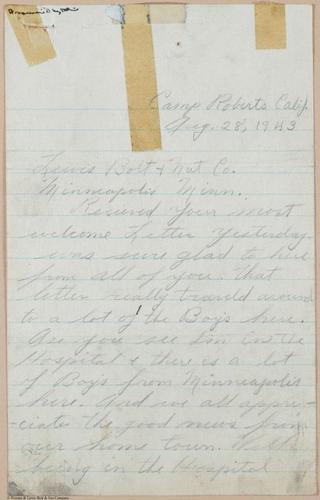 Camp Roberts Calif.
Aug. 28, 1943
Lewis Bolt & Nut Co.
Minneapolis Minn.
Recived your most
welcome Letter yesterday.
was sure glad to here
from all of you. That
letter really traveld around
to a lot of the Boys here.
As you see I'm in the
Hospital & there is a lot
of Boys from Minneapolis
here. And we all appre-
-ciate the good news from
our home town. Well
being in the Hospital